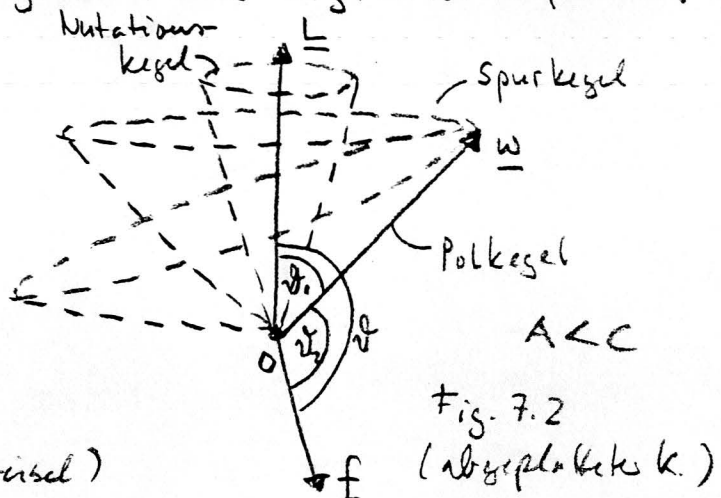 Nutations-
kegel
L
Spurkegel
ω
Polkegel
ϑ₁
ϑ₂
ϑ
O
A < C
f
Fig. 7.2
(abgeplatteter K.)